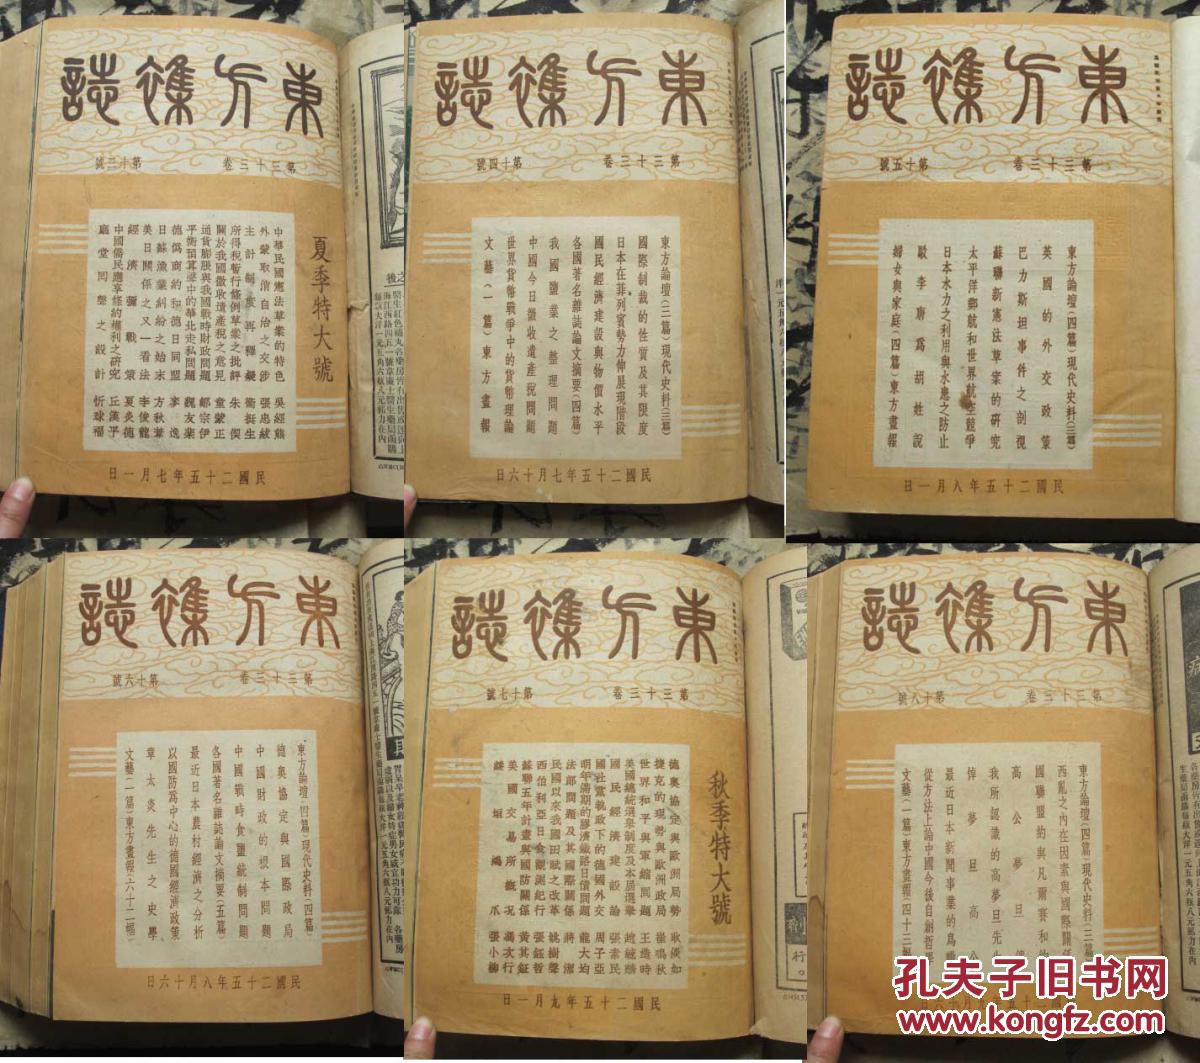 東方雜誌
第三十三卷 第十三號
夏季特大號
中華民國憲法草案的特色 吳經熊
外蒙取消自治之交涉 張忠紱
主計制度再釋疑 衞挺生
所得稅暫行條例草案之批評 朱偰
關於我國徵收遺產稅之意見 童蒙正
通貨膨脹與我國戰時財政問題 鄒宗伊
平衡預算聲中的華北走私問題 魏友棐
德僞商約和德日同盟 李逸
日蘇漁業糾紛之始末 方秋葦
美日關係之又一看法 李俊龍
經濟彌戰策 夏炎德
中國僑民應享條約權利之研究 丘漢平
廳堂同聲之設計 忻球福
民國二十五年七月一日
東方雜誌
第三十三卷 第十四號
東方論壇(三篇)現代史料(三篇)
國際制裁的性質及其限度
日本在菲列賓勢力伸展現階段
國民經濟建設與物價水平
各國著名雜誌論文摘要(四篇)
我國鹽業之整理問題
中國今日徵收遺產稅問題
世界貨幣戰爭中的貨幣理論
文藝(一篇)東方畫報
民國二十五年七月十六日
東方雜誌
第三十三卷 第十五號
東方論壇(四篇)現代史料(三篇)
英國的外交政策
巴力斯坦事件之剖視
蘇聯新憲法草案的研究
太平洋郵航和世界航空競爭
日本水力之利用與水患之防止
駁李唐爲胡姓說
婦女與家庭(四篇)東方畫報
民國二十五年八月一日
東方雜誌
第三十三卷 第十六號
東方論壇(四篇)現代史料(四篇)
德奧協定與國際政局
中國財政的根本問題
中國戰時食鹽統制問題
各國著名雜誌論文摘要(五篇)
最近日本農村經濟之分析
以國防爲中心的德國經濟政策
章太炎先生之史學
文藝(一篇)東方畫報(六十二幅)
民國二十五年八月十六日
東方雜誌
第三十三卷 第十七號
秋季特大號
德奧協定與歐洲局勢 耿淡如
捷克的現勢與歐洲政局 崔鳴秋
世界和平與軍縮問題 王造時
美國總統選舉制度及本屆選舉
國民經濟建設論 張素民
國社黨執政下的德國外交 周子亞
明年滿期的膠濟鐵路日債問題 龍大均
法郎問題及其國際關係 蔣潔
民國以來我國田賦之改革 姚樹聲
西伯利亞日食觀測紀行 張鈺哲
蘇聯五年計畫與國防關係 黃其鈺
美國交易所概況 馮次行
縫垣鴻爪 張小柳
民國二十五年九月一日
東方雜誌
第三十三卷 第十八號
東方論壇(四篇)現代史料(二篇)
西亂之內在因素與國際關係
國聯盟約與凡爾賽和約
高公夢旦
我所認識的高夢旦先生
悼夢旦高公
最近日本新聞事業的鳥瞰
從方法上論中國今後自創哲學
文藝(一篇)東方畫報(四十三幅)
孔夫子旧书网
www.kongfz.com